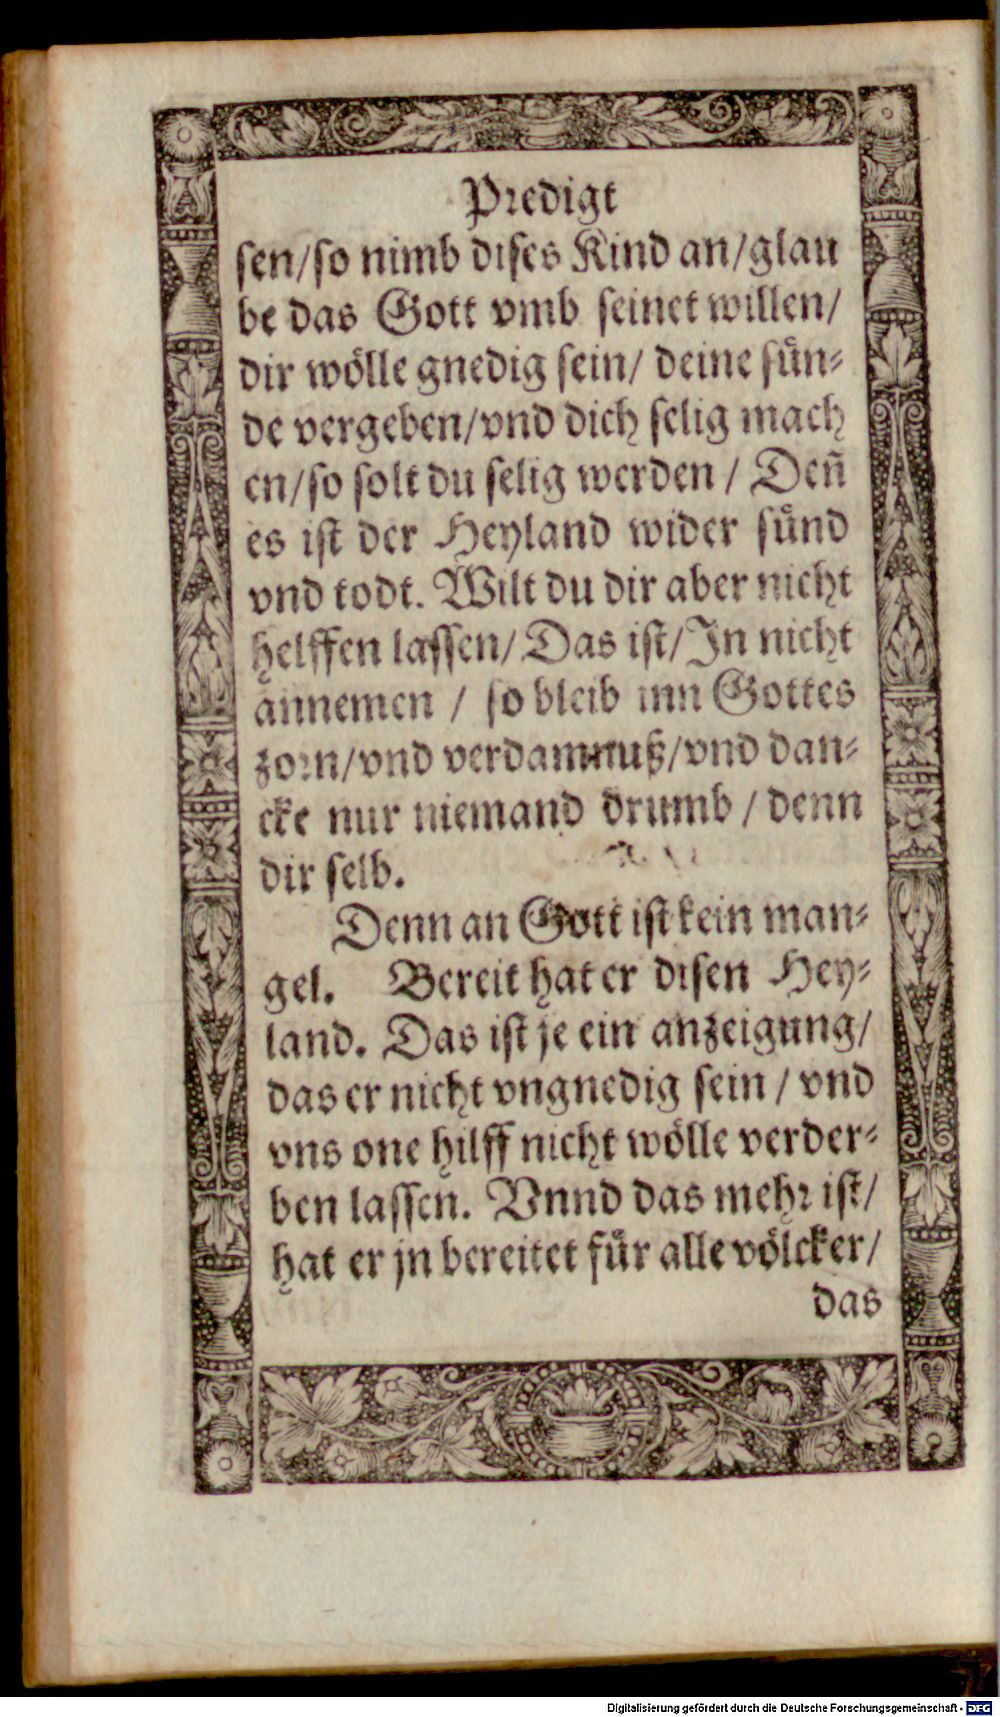 Predigt
sen/so nimb dises Kind an/glau
be das Gott vmb seinet willen/
dir wölle gnedig sein/ deine sün-
de vergeben/vnd dich selig mach
en/so solt du selig werden / Den̄
es ist der Heyland wider sünd
vnd todt. Wilt du dir aber nicht
helffen lassen/ Das ist/In nicht
annemen / so bleib inn Gottes
zorn/vnd verdamnuß/vnd dan-
cke nur niemand drumb / denn
dir selb.
Denn an Gott ist kein man-
gel. Bereit hat er disen Hey-
land. Das ist je ein anzeigung/
das er nicht vngnedig sein / vnd
vns one hilff nicht wölle verder-
ben lassen. Vnnd das mehr ist/
hat er jn bereitet für alle völcker/
das
Digitalisierung gefördert durch die Deutsche Forschungsgemeinschaft - DFG